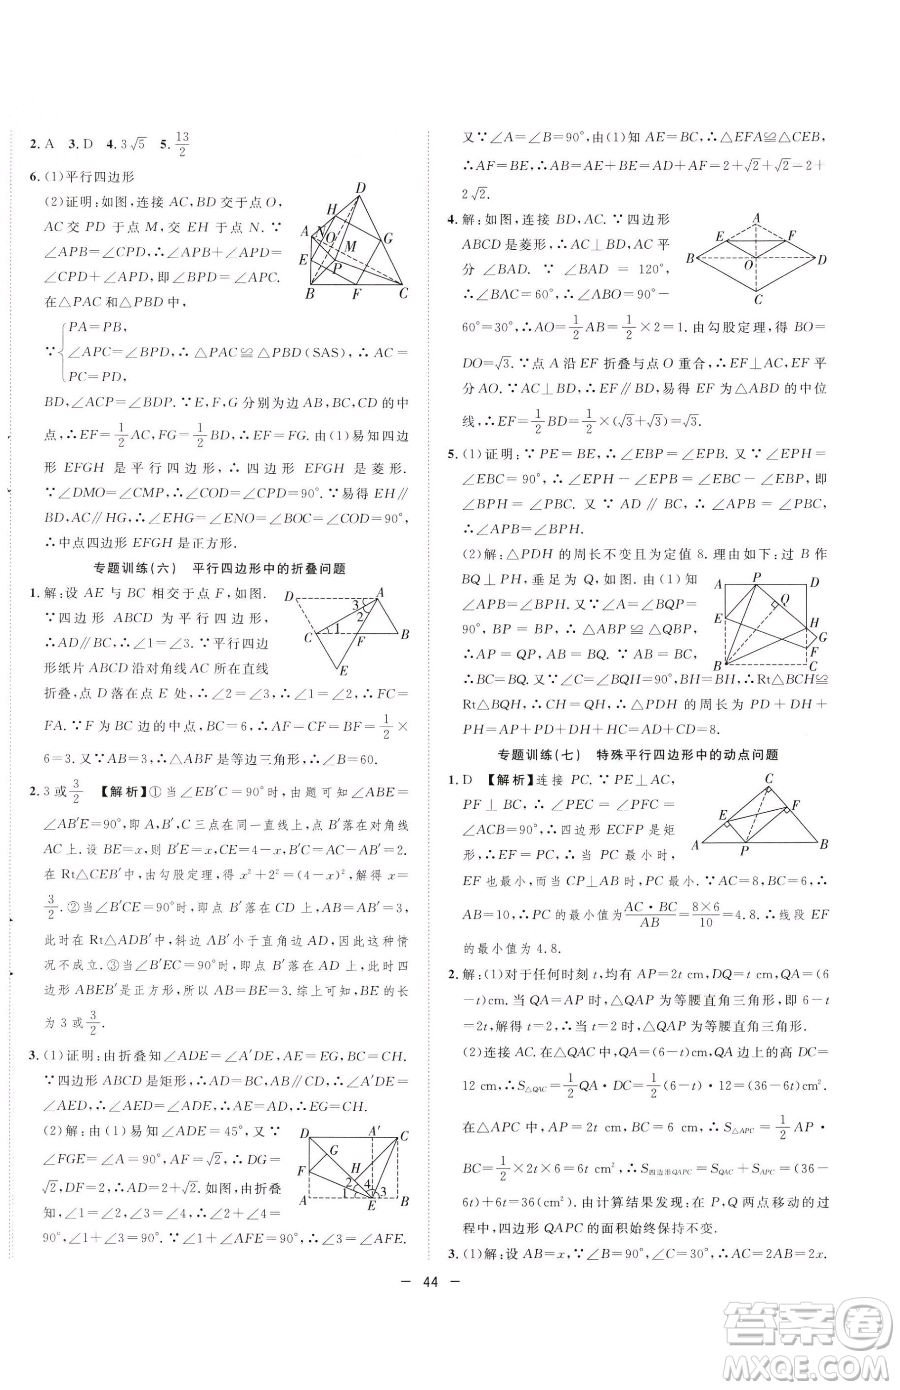 2. A 3. D 4. 3√5 5. 13/2
6. (1)平行四边形
(2)证明:如图,连接 AC,BD 交于点 O,
AC 交 PD 于点 M,交 EH 于点 N. ∵
∠APB=∠CPD,∴∠APB+∠APD=
∠CPD+∠APD,即∠BPD=∠APC.
在△PAC 和△PBD 中,
∵{PA=PB,
∠APC=∠BPD,∴△PAC≌△PBD(SAS),∴AC=
PC=PD,
BD,∠ACP=∠BDP. ∵E,F,G 分别为边 AB,BC,CD 的中
点,∴EF=1/2AC,FG=1/2BD,∴EF=FG. 由(1)易知四边形
EFGH 是平行四边形,∴四边形 EFGH 是菱形. ∵
∠DMO=∠CMP,∴∠COD=∠CPD=90°. ∵易得 EH∥
BD,AC∥HG,∴∠EHG=∠ENO=∠BOC=∠COD=90°,
∴中点四边形 EFGH 是正方形.
专题训练(六) 平行四边形中的折叠问题
1. 解:设 AE 与 BC 相交于点 F,如图,
∵四边形 ABCD 为平行四边形,
∴AD∥BC,∴∠1=∠3. ∵平行四边
形纸片 ABCD 沿对角线 AC 所在直线
折叠,点 D 落在点 E 处,∴∠2=∠3,∴∠1=∠2,∴FC=
FA. ∵F 为 BC 边的中点,BC=6,∴AF=CF=BF=1/2×
6=3. ∵AB=3,∴△ABF 是等边三角形,∴∠B=60°.
2. 3 或 3/2 【解析】①当∠EB′C=90°时,由题意可知
∠AB′E=90°,即 A,B′,C 三点在同一条直线上,点 B′落在对角线
AC 上. 设 BE=x,则 B′E=x,CE=4-x,B′C=AC-AB′=2.
在 Rt△CEB′中,由勾股定理得 x²+2²=(4-x)²,解得 x=
3/2. ②当∠B′CE=90°时,由题意可知,点 B′落在 CD 上,
此时在 Rt△ADB′中,斜边 AB′小于直角边 AD,因此这种情况
不成立. ③当∠B′EC=90°时,点 B′落在 AD 上,此时四
边形 ABEB′是正方形,所以 AB=BE=3. 综上可知,BE 的长
为 3 或 3/2.
3. (1)证明:由折叠知∠ADE=∠A′DE,EG=BC=CH.
∵四边形 ABCD 是矩形,∴∠A′DE=
∠AED,∴∠ADE=∠AED,∴EG=CH.
(2)解:由(1)易知∠ADE=45°,又∵
∠FGE=∠A=90°,AF=√2,∴DG=
√2,DF=2,∴AD=2+√2. 如图,由折叠
知,∠1=∠2,∠3=∠4,∴∠2+∠4=
90°,∠1+∠3=90°. 又∵∠1+∠AFE=90°,∴∠AFE=∠3.
又∵∠A=∠B=90°,由(1)知 AE=BC,∴△EFA≌△CEB,
∴AF=BE,∴AB=AE+BE=AD+AF=2+√2+√2=2+
2√2.
4. 解:如图,连接 BD,AC. ∵四边形
ABCD 是菱形,∴AC⊥BD,AC 平
分∠BAD. ∵∠BAD=120°,
∴∠BAC=60°,∴∠ABO=90°-
60°=30°,∴AO=1/2AB=1/2×2=1. 由勾股定理,得 BO=
DO=√3. ∵点 A 沿 EF 折叠与点 O 重合,∴EF⊥AC,EF 平
分 AO. ∵AC⊥BD,∴EF∥BD,易得 EF 为△ABD 的中位
线,∴EF=1/2BD=1/2×(√3+√3)=√3.
5. (1)证明:∵PE=BE,∴∠EBP=∠EPB. 又∵∠EPH=
∠EBC=90°,∴∠EPH-∠EPB=∠EBC-∠EBP,即
∠BPH=∠PBC. 又∵AD∥BC,∴∠APB=∠PBC,
∴∠APB=∠BPH.
(2)解:△PDH 的周长不变且为定值 8. 理由如下:过 B 作
BQ⊥PH,垂足为 Q,如图. 由(1)知
∠APB=∠BPH. ∵∠A=∠BQP=
90°,BP=BP,∴△ABP≌△QBP,
∴AP=QP,AB=BQ. ∵AB=BC,
∴BC=BQ. ∵∠C=∠BQH=90°,BH=BH,∴Rt△BCH≌
Rt△BQH,∴CH=QH,∴△PDH 的周长为 PD+DH+
PH=AP+PD+DH+HC=AD+CD=8.
专题训练(七) 特殊平行四边形中的动点问题
1. D 【解析】连接 PC. ∵PE⊥AC,
PF⊥BC,∴∠PEC=∠PFC=
∠ACB=90°,∴四边形 ECFP 是矩
形,∴EF=PC,∴当 PC 最小时,EF
也最小,即当 CP⊥AB 时,PC 最小. ∵AC=8,BC=6,∴
AB=10,∴PC 的最小值为AC·BC/AB=8×6/10=4.8. ∴线段 EF
的最小值为 4.8.
2. 解:(1)对于任何时刻 t,均有 AP=2t cm,DQ=t cm,QA=(6
-t)cm. 当 QA=AP 时,△QAP 为等腰直角三角形,即 6-t
=2t,解得 t=2,∴当 t=2 时,△QAP 为等腰直角三角形.
(2)连接 AC. 在△QAC 中,QA=(6-t)cm,QA 边上的高 DC=
12 cm,∴S△QAC=1/2QA·DC=1/2(6-t)·12=(36-6t)cm².
在△APC 中,AP=2t cm,BC=6 cm,∴S△APC=1/2AP·
BC=1/2×2t×6=6t(cm²),∴S四边形QAPC=S△QAC+S△APC=(36-
6t)+6t=36(cm²). 由计算结果发现:在 P,Q 两点移动的过
程中,四边形 QAPC 的面积始终保持不变.
3. (1)解:设 AB=x,∵∠B=90°,∠C=30°,∴AC=2AB=2x.
— 44 —
答案圈
MXQE.COM